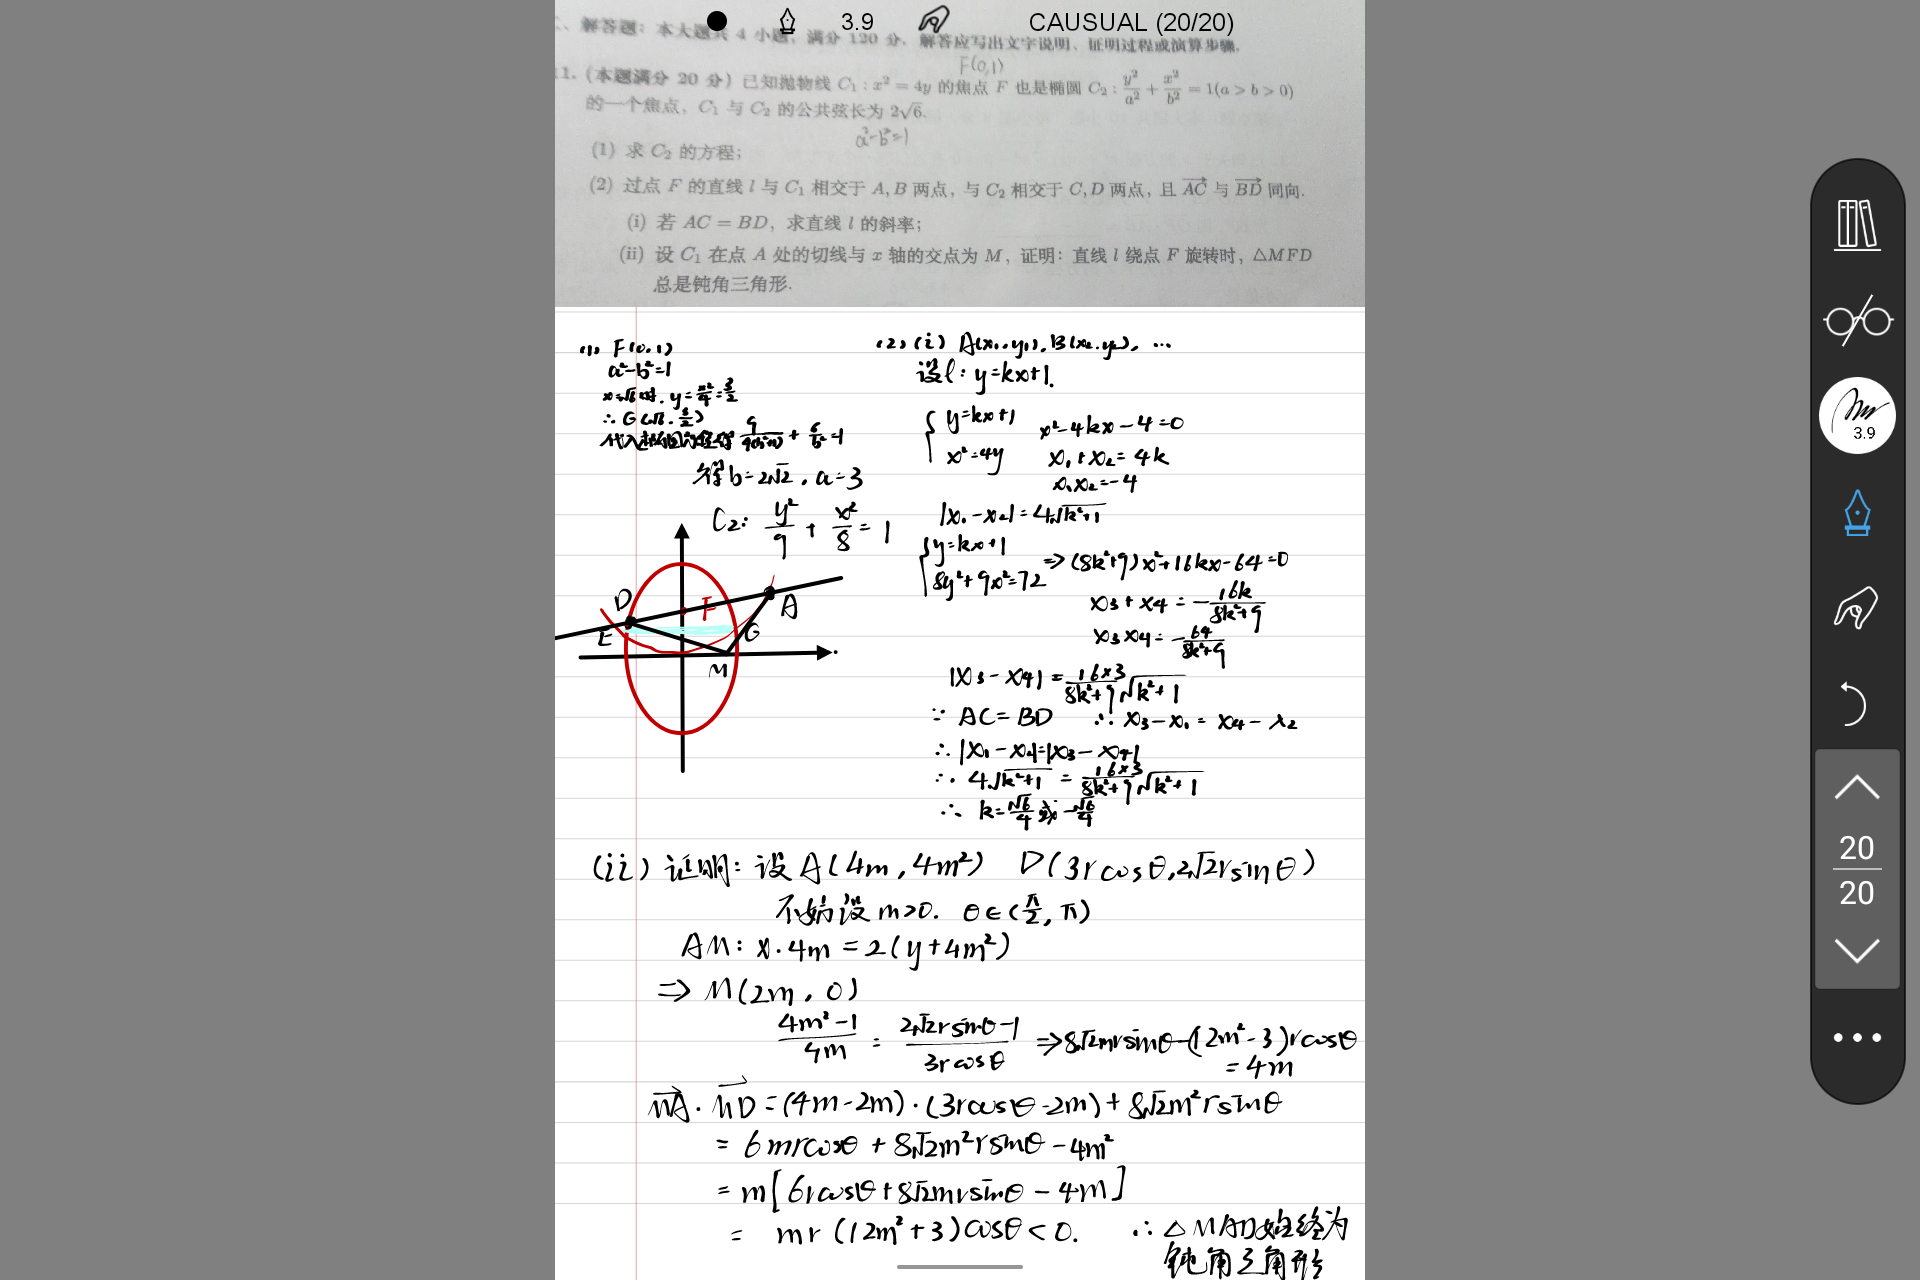 3.9
CAUSUAL (20/20)
二、解答题：本大题共 4 小题，满分 120 分．解答应写出文字说明、证明过程或演算步骤．
F(0,1)
11. (本题满分 20 分) 已知抛物线 C₁ : x² = 4y 的焦点 F 也是椭圆 C₂ : y²/a² + x²/b² = 1(a > b > 0)
的一个焦点，C₁ 与 C₂ 的公共弦长为 2√6.
a²-b²=1
(1) 求 C₂ 的方程；
(2) 过点 F 的直线 l 与 C₁ 相交于 A, B 两点，与 C₂ 相交于 C, D 两点，且 AC 与 BD 同向.
(i) 若 AC = BD，求直线 l 的斜率；
(ii) 设 C₁ 在点 A 处的切线与 x 轴的交点为 M，证明：直线 l 绕点 F 旋转时，△MFD
总是钝角三角形.
(1) F(0,1)
a²-b²=1
x=√6时. y=x²/4=3/2
∴ G(√6, 3/2)
9/4(b²+1) + 6/b²=1
得b=2√2, a=3
C₂: y²/9 + x²/8 = 1
D
F
A
E
G
M
(2)(i) A(x₁,y₁), B(x₂,y₂), ...
设l: y=kx+1.
y=kx+1
x²=4y
x²-4kx-4=0
x₁+x₂=4k
x₁x₂=-4
|x₁-x₂|=4√k²+1
y=kx+1
8y²+9x²=72
⇒(8k²+9)x²+16kx-64=0
x₃+x₄=-16k/8k²+9
x₃x₄=-64/8k²+9
|x₃-x₄|=16×3/8k²+9 √k²+1
∵ AC=BD ∴ x₃-x₁=x₄-x₂
∴ |x₁-x₂|=|x₃-x₄|
∴ 4√k²+1 = 16×3/8k²+9 √k²+1
∴ k=√6/4 或 -√6/4
(ii) 证明: 设 A(4m, 4m²) D(3rcosθ, 2√2rsinθ)
不妨设 m>0. θ∈(π/2, π)
AM: x·4m=2(y+4m²)
⇒ M(2m, 0)
4m²-1/4m = 2√2rsinθ-1/3rcosθ ⇒8√2mrsinθ-(12m²-3)rcosθ
=4m
MA·MD=(4m-2m)·(3rcosθ-2m)+8√2m²rsinθ
= 6mrcosθ + 8√2m²rsinθ-4m²
= m[6rcosθ+8√2mrsinθ-4m]
= mr(12m²+3)cosθ<0. ∴△MAD始终为
钝角三角形
3.9
20
20